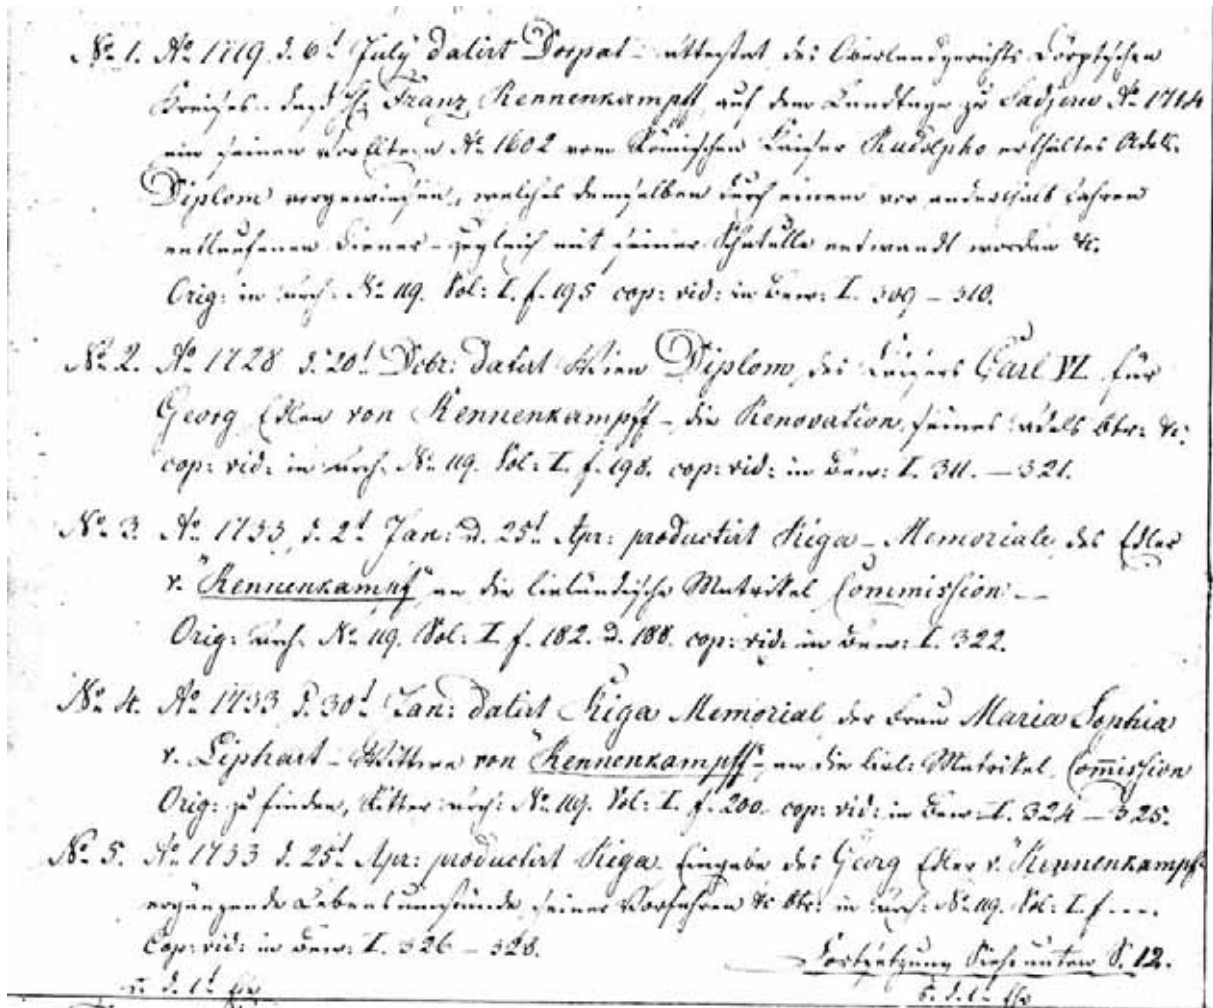 No 1. Ao 1719 d. 6t July datirt Dorpat - attestat des Oberlandgerichts Dörptschen
Kreises - daß H. Franz Rennenkampff auf dem Landtage zu Ao 1714
ein seinen Voreltern Ao 1602 vom Römischen Kaiser Rudolpho ertheiltes Adels-
Diplom vorgewiesen, welches demselben durch einen vor anderthalb Jahren
entlaufenen Diener - zugleich mit seiner Schatulle entwandt worden &c.
Orig: in Arch: No 119. Vol: I. f. 195 cop: vid: in Bew: I. 309 - 310.
No 2. Ao 1728 d. 20t Dcbr: datirt Wien Diplom des Kaisers Carl VI. für
Georg Edlen von Rennenkampff - die Renovation seines Adels btr: &c:
cop: vid: in Arch. No 119. Vol: I. f. 198. cop: vid: in Bew: I. 311. - 321.
No 3. Ao 1733, d. 2t Jan: u. 25t Apr: productirt Riga - Memoriale des Edler
v. "Rennenkampff" an die livländische Matrikel Commission --
Orig: Arch. No 119. Vol: I. f. 182. u. 188. cop: vid: in Bew: I. 322.
No 4. Ao 1733 d. 30t Jan: datirt Riga Memorial der Frau Maria Sophia
v. Liphart - Wittwe von "Rennenkampff" - an die livl: Matrikel Com̅ission
Orig: zu finden, Ritter Arch: No 119. Vol: I. f. 200. cop: vid: in Bew: I. 324 - 325.
No 5. Ao 1733 d. 25t Apr: productirt Riga Eingabe des Georg Edler v. "Rennenkampff
ergänzende Lebensumstände seiner Vorfahren &c btr: in Arch: No 119. Vol: I. f ....
Cop: vid: in Bew: I. 326 - 328.
Fortsetzung Siehe unten S. 12.